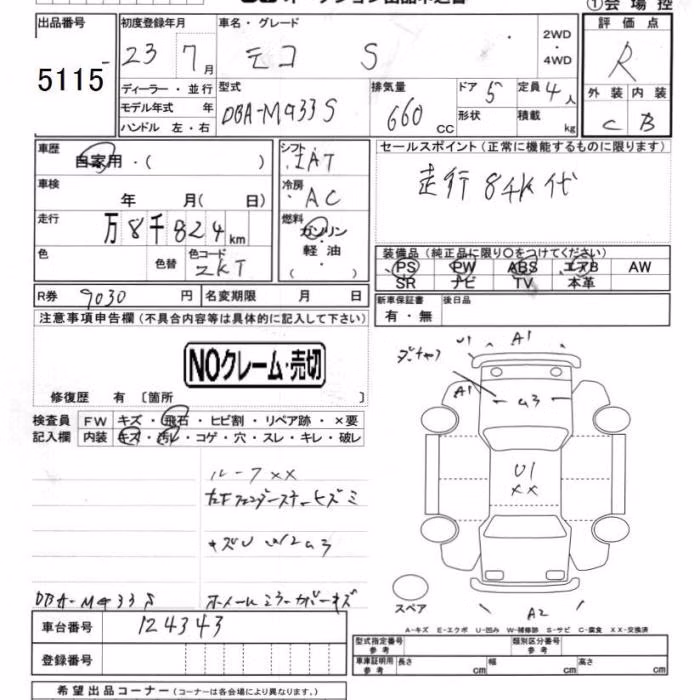 ①会場控
出品番号
5115
初度登録年月
23 7月
車名・グレード
モコ S
2WD
4WD
評価点
R
外装 内装
C B
ディーラー・並行
モデル年式 年
ハンドル 左・右
型式
DBA-MG33S
排気量
660 cc
ドア 5
形状
定員 4人
積載 kg
車歴
自家用・( )
車検
年 月( 日)
走行
万8千824km
色
色替
色コード
ZKT
シフト
IAT
冷房
AC
燃料
ガソリン
軽油
( )
セールスポイント(正常に機能するものに限ります)
走行84K代
装備品(純正品に限り○をつけてください)
PS PW ABS エアB AW
SR ナビ TV 本革
R券 9030 円
名変期限 月 日
新車保証書
有・無
後日品
注意事項申告欄(不具合内容等は具体的に記入して下さい)
NOクレーム・売切
修復歴 有 〔箇所 〕
検査員
記入欄
FW キズ・飛石・ヒビ割・リペア跡・×要
内装 キズ・汚レ・コゲ・穴・スレ・キレ・破レ
U1 A1
A1
U3
U1
××
A2
スペア
ルーフ××
DBA-MG33S
A-キズ E-エクボ U-凹み W-補修跡 S-サビ C-腐食 XX-交換済
車台番号
124343
登録番号
型式指定番号
参考
類別区分番号
参考
車庫証明用
参考
長さ cm 幅 cm 高さ cm
希望出品コーナー(コーナーは各会場により異なります。)